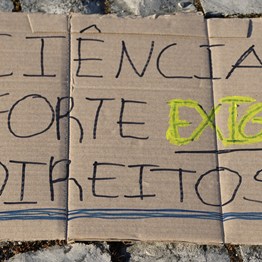 CIÊNCIA
FORTE EXIG
DIREITOS